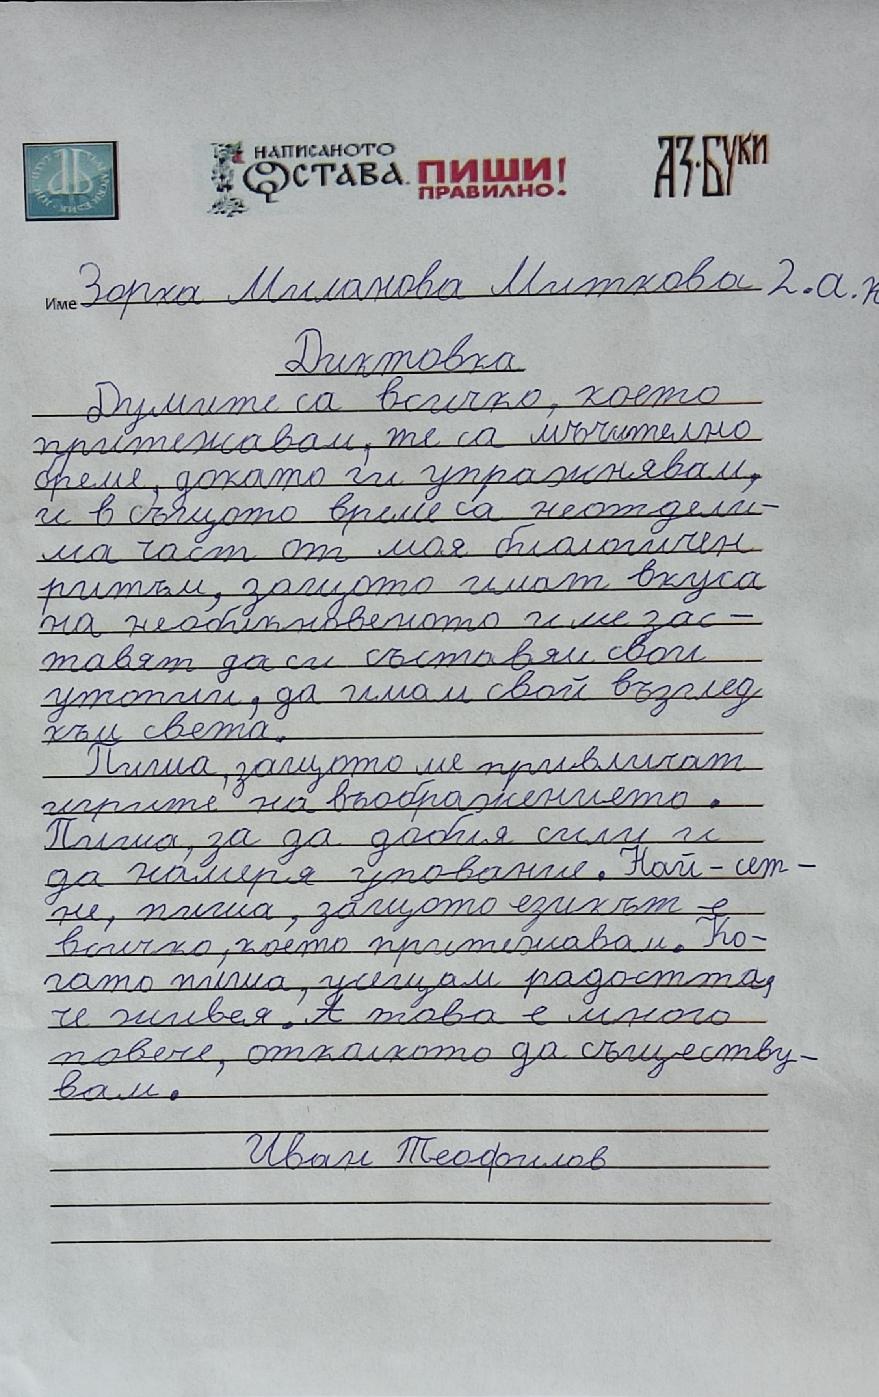 НАПИСАНОТО
ОСТАВА. ПИШИ
ПРАВИЛНО!
АЗ·БУКИ
Име Зорка Миланова Миткова 2.а.к
Диктовка
Думите са всичко, което
притежавам, те са мъчително
бреме, докато ги упражнявам,
и в същото време са неотдели-
ма част от моя биологичен
ритъм, защото имат вкуса
на необикновеното и ме зас-
тавят да си съставям свои
утопии, да имам свой възглед
към света.
Пиша, защото ме привличат
игрите на въображението.
Пиша, за да добия сили и
да намеря упование. Най-сет-
не, пиша, защото езикът е
всичко, което притежавам. Ко-
гато пиша, усещам радостта,
че живея. А това е много
повече, отколкото да съществу-
вам.
Иван Теофилов